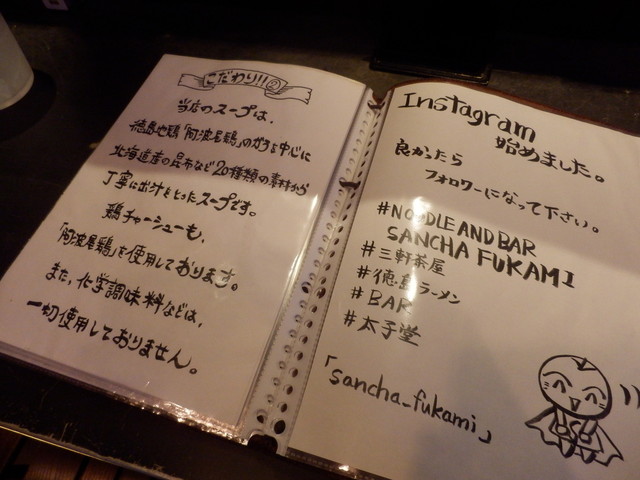 こだわり!!②
当店のスープは、
徳島地鶏「阿波尾鶏」のガラを中心に
北海道産の昆布など20種類の素材から
丁寧に出汁をとったスープです。
鶏チャーシューも、
「阿波尾鶏」を使用しております。
また、化学調味料などは、
一切使用しておりません。
Instagram
始めました。
良かったら
フォロワーになって下さい。
#NOODLE AND BAR
SANCHA FUKAMI
#三軒茶屋
#徳島ラーメン
#BAR
#太子堂
「sancha_fukami」